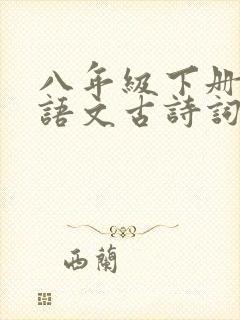 八年級下册
語文古詩詞
西蘭